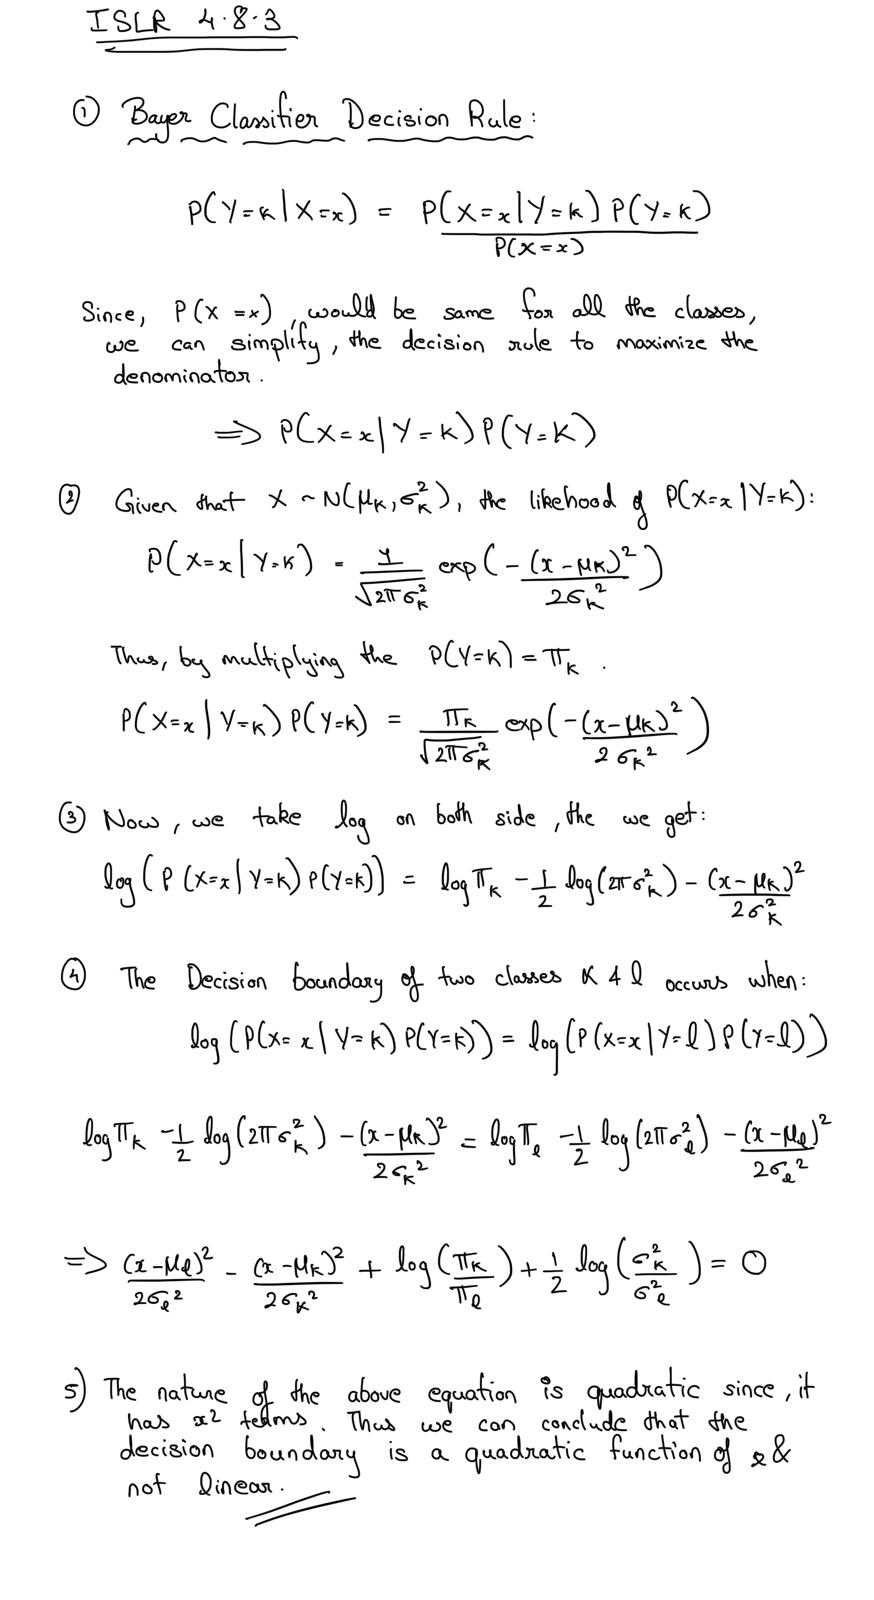 ISLR 4.8.3
① Bayer Classifier Decision Rule:
P(Y=k|X=x) = P(X=x|Y=k) P(Y=k)
P(X=x)
Since, P(X=x), would be same for all the classes,
we can simplify, the decision rule to maximize the
denominator.
=> P(X=x|Y=k)P(Y=K)
② Given that X ~ N(μK, σ²K), the likehood of P(X=x|Y=k):
P(X=x|Y=k) = 1/√2πσ²K exp(-(x-μK)²/2σK²)
Thus, by multiplying the P(Y=K) = πK.
P(X=x|Y=k) P(Y=k) = πK/√2πσ²K exp(-(x-μK)²/2σK²)
③ Now, we take log on both side, the we get:
log(P(X=x|Y=k) P(Y=k)) = log πK - 1/2 log(2πσ²K) - (x-μK)²/2σ²K
④ The Decision boundary of two classes K & l occurs when:
log(P(X=x|Y=k) P(Y=k)) = log(P(X=x|Y=l) P(Y=l))
log πK - 1/2 log(2πσ²K) - (x-μK)²/2σK² = log πl - 1/2 log(2πσ²l) - (x-μl)²/2σl²
=> (x-μl)²/2σl² - (x-μK)²/2σK² + log(πK/πl) + 1/2 log(σ²K/σ²l) = 0
5) The nature of the above equation is quadratic since, it
has x² terms. Thus we can conclude that the
decision boundary is a quadratic function of x &
not linear.